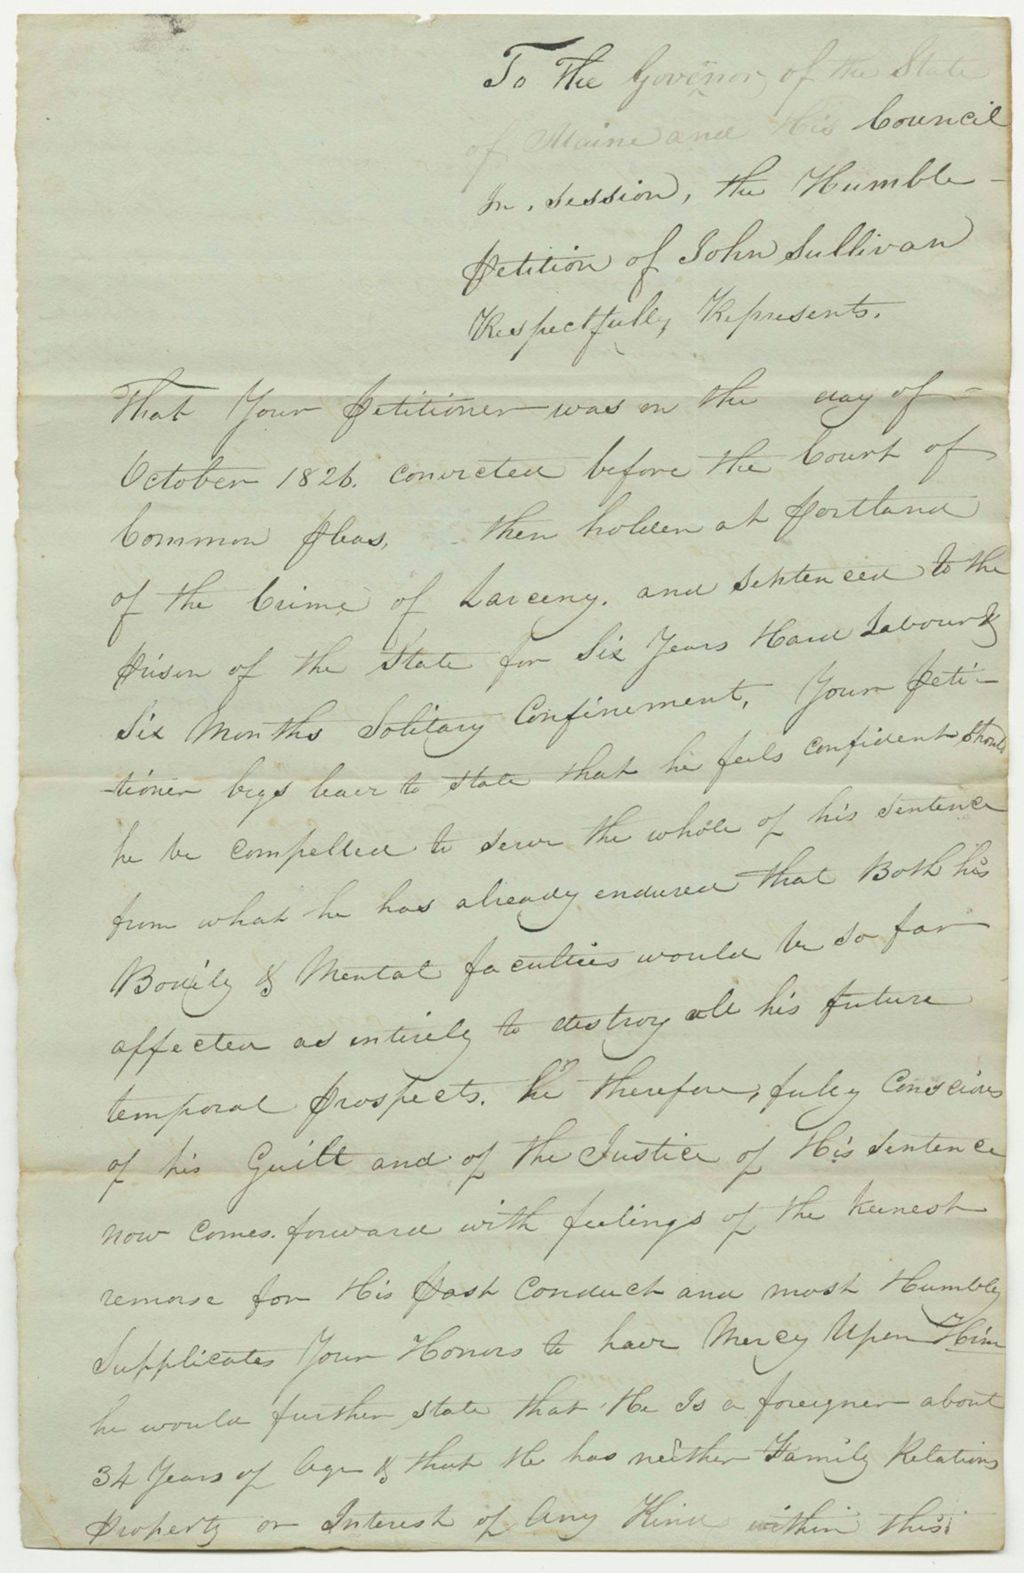 To The Govenor, of the State
of Maine and His Council
In. session, the Humble -
Petition of John Sullivan
Respectfully, Represents.
That Your Petitioner was on the day of -
October 1826. convicted before the Court of
Common Pleas, then holden at Portland
of the Crime of Larceny. and sentenced To the
Prison of the State for Six Years Hard Labour &
Six Months Solitary Confinement, Your Peti-
-tioner begs leave to state that he feels confident should
he be compelled to serve the whole of his sentence
from what he has already endured that Both his
Bodily & Mental faculties would be so far
affected as intirely to destroy all his future
temporal Prospects. he therefore, fully Conscious
of his Guilt and of the Justice of His sentence
now comes. forward with feelings of the keenest
remorse for His Past Conduct and most Humbly
Supplicates Your Honors to have Mercy Upon Him
he would further state that He Is a foreigner about
34 Years of Age & that He has neither Family Relations
Property or Interest of Any Kind within this